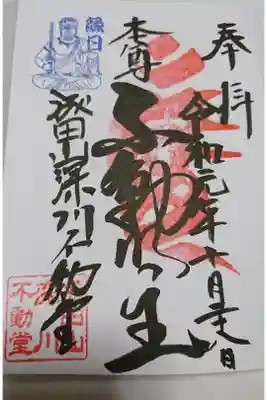 奉拝
令和元年十月
本尊
不動明王
縁日
成田深川不動堂
成田山
深川
不動堂